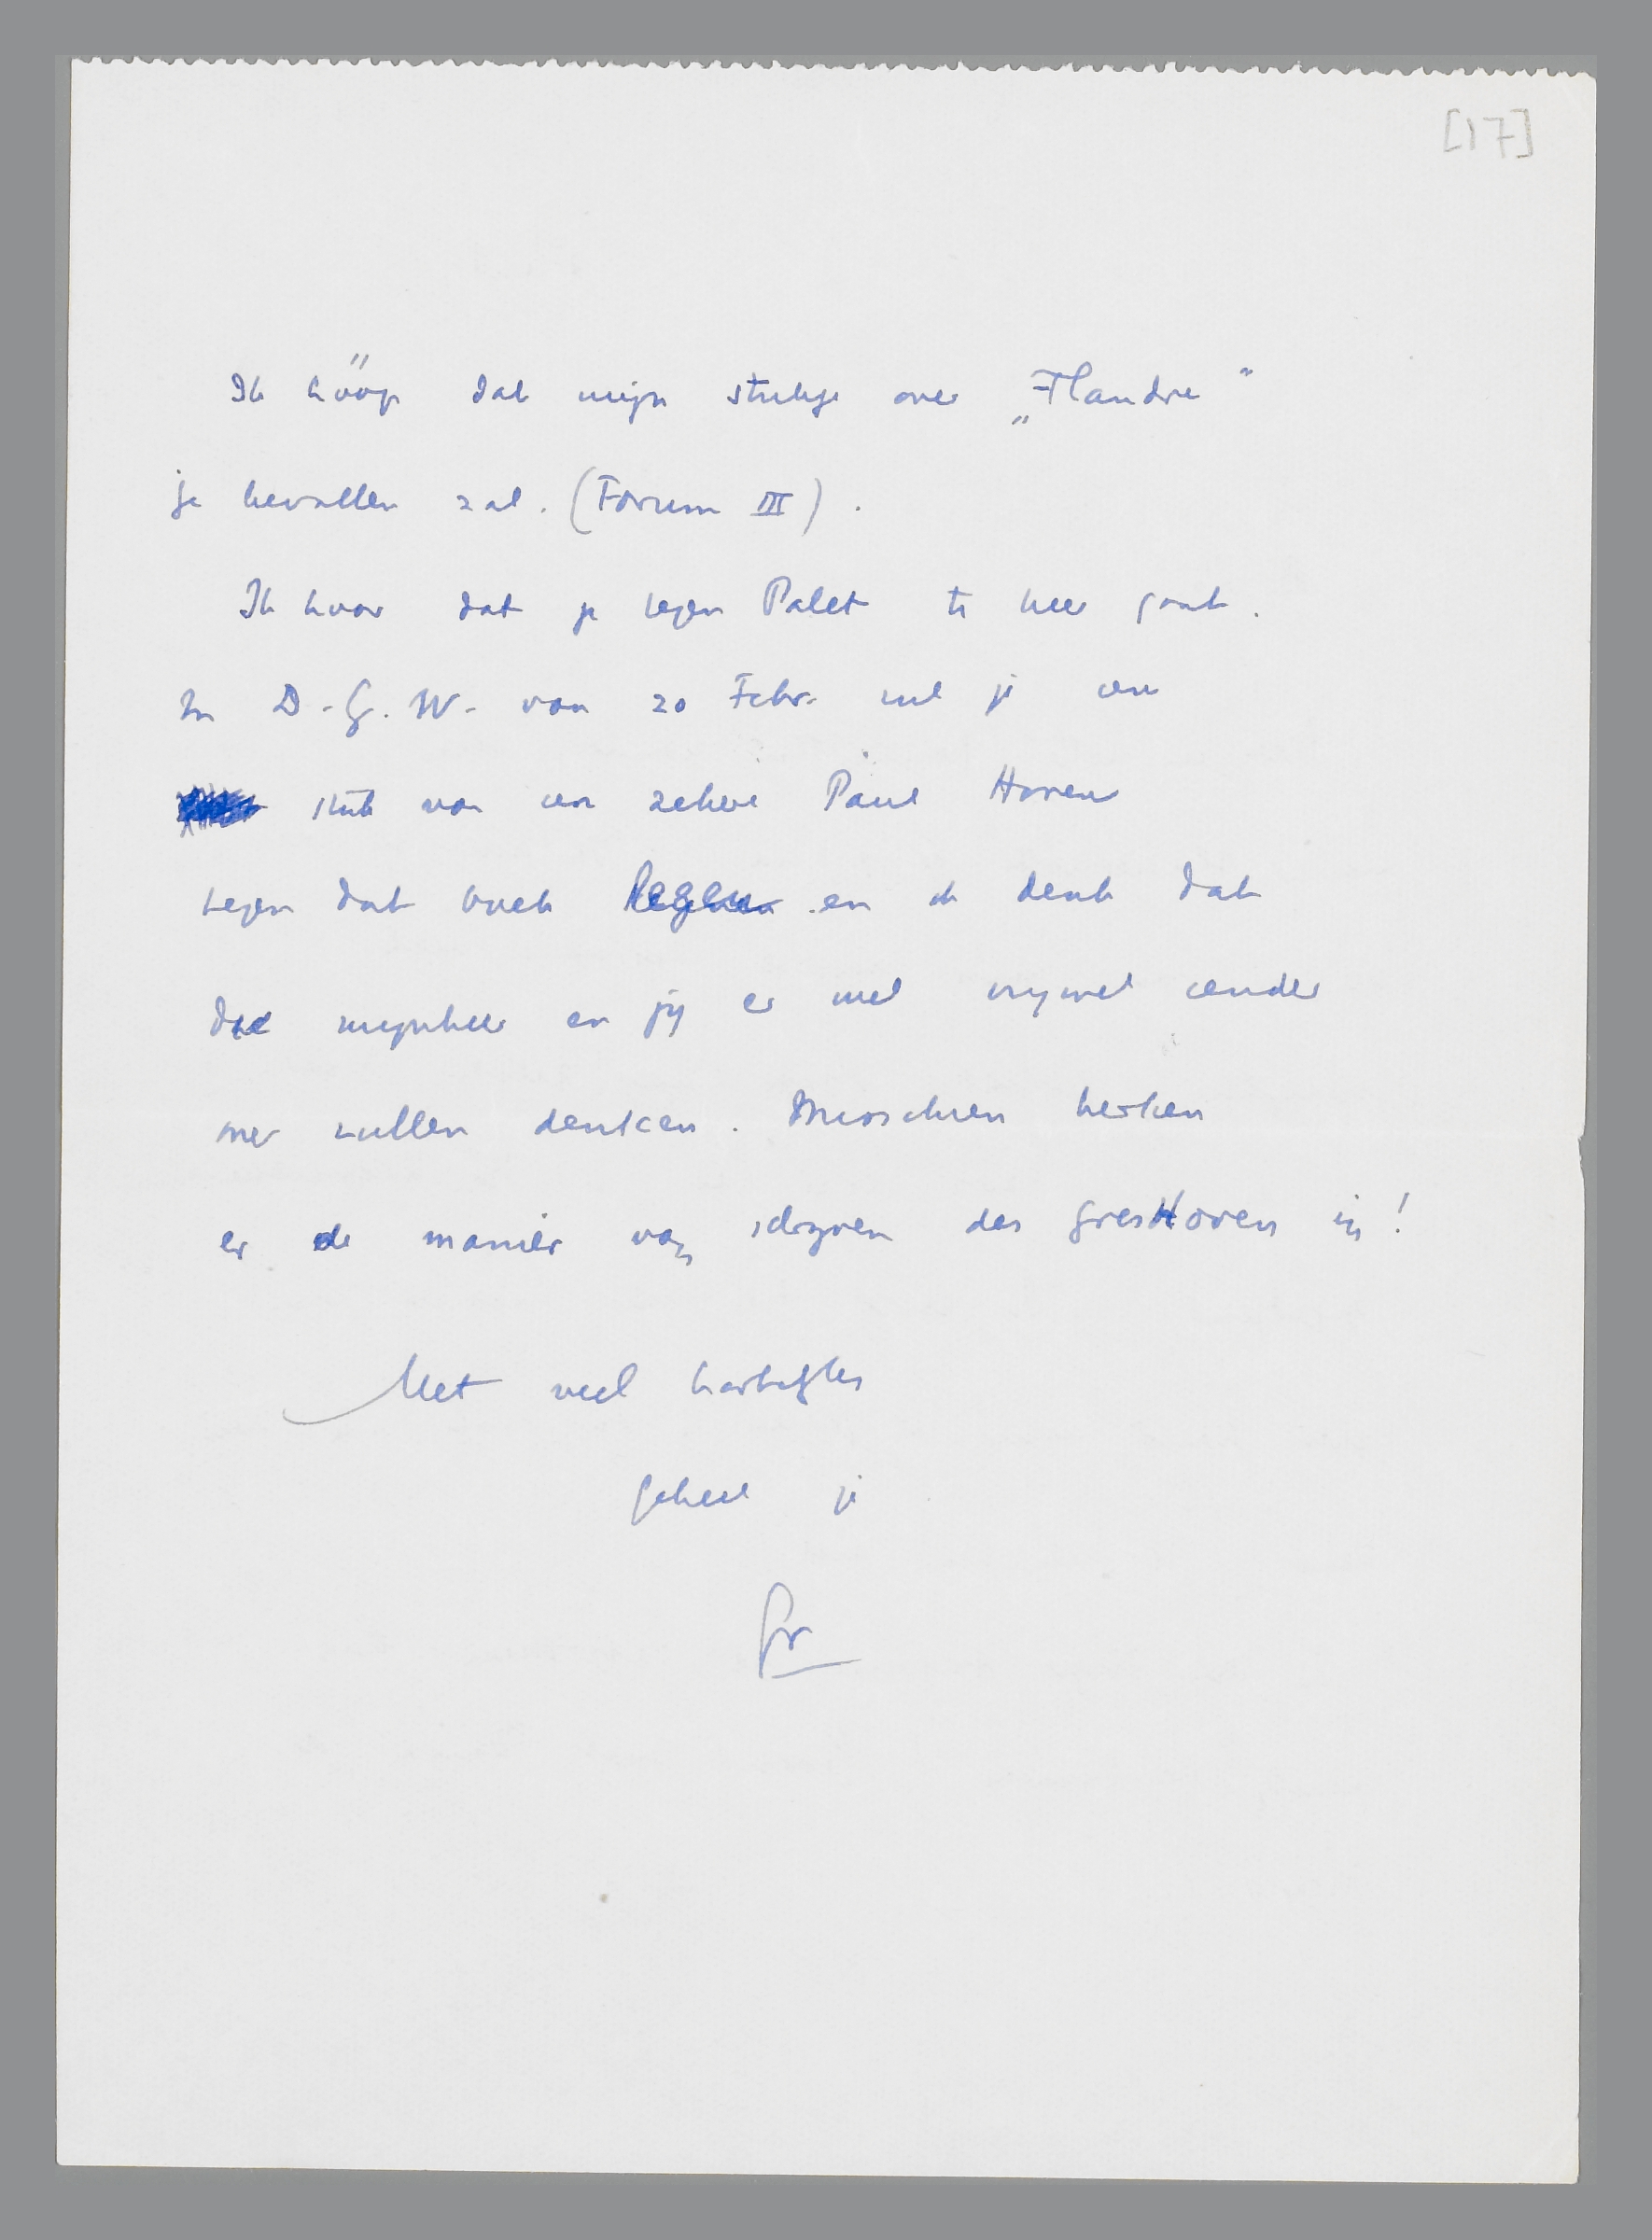 [17]
Ik hoop dat mijn stukje over „Flandre"
je bevallen zal. (Forum III).
Ik hoor dat je tegen Palet te keer gaat.
In D.G.W. van 20 Febr. vind je een
stuk van een zekere Paul Hoven
tegen dat boek en ik denk dat
die mijnheer en jij er wel vrijwel eender
over zullen denken. Misschien herken
er de manier van schrijven des gresHoven in!
Met veel hartelijks
geheel je
Gr